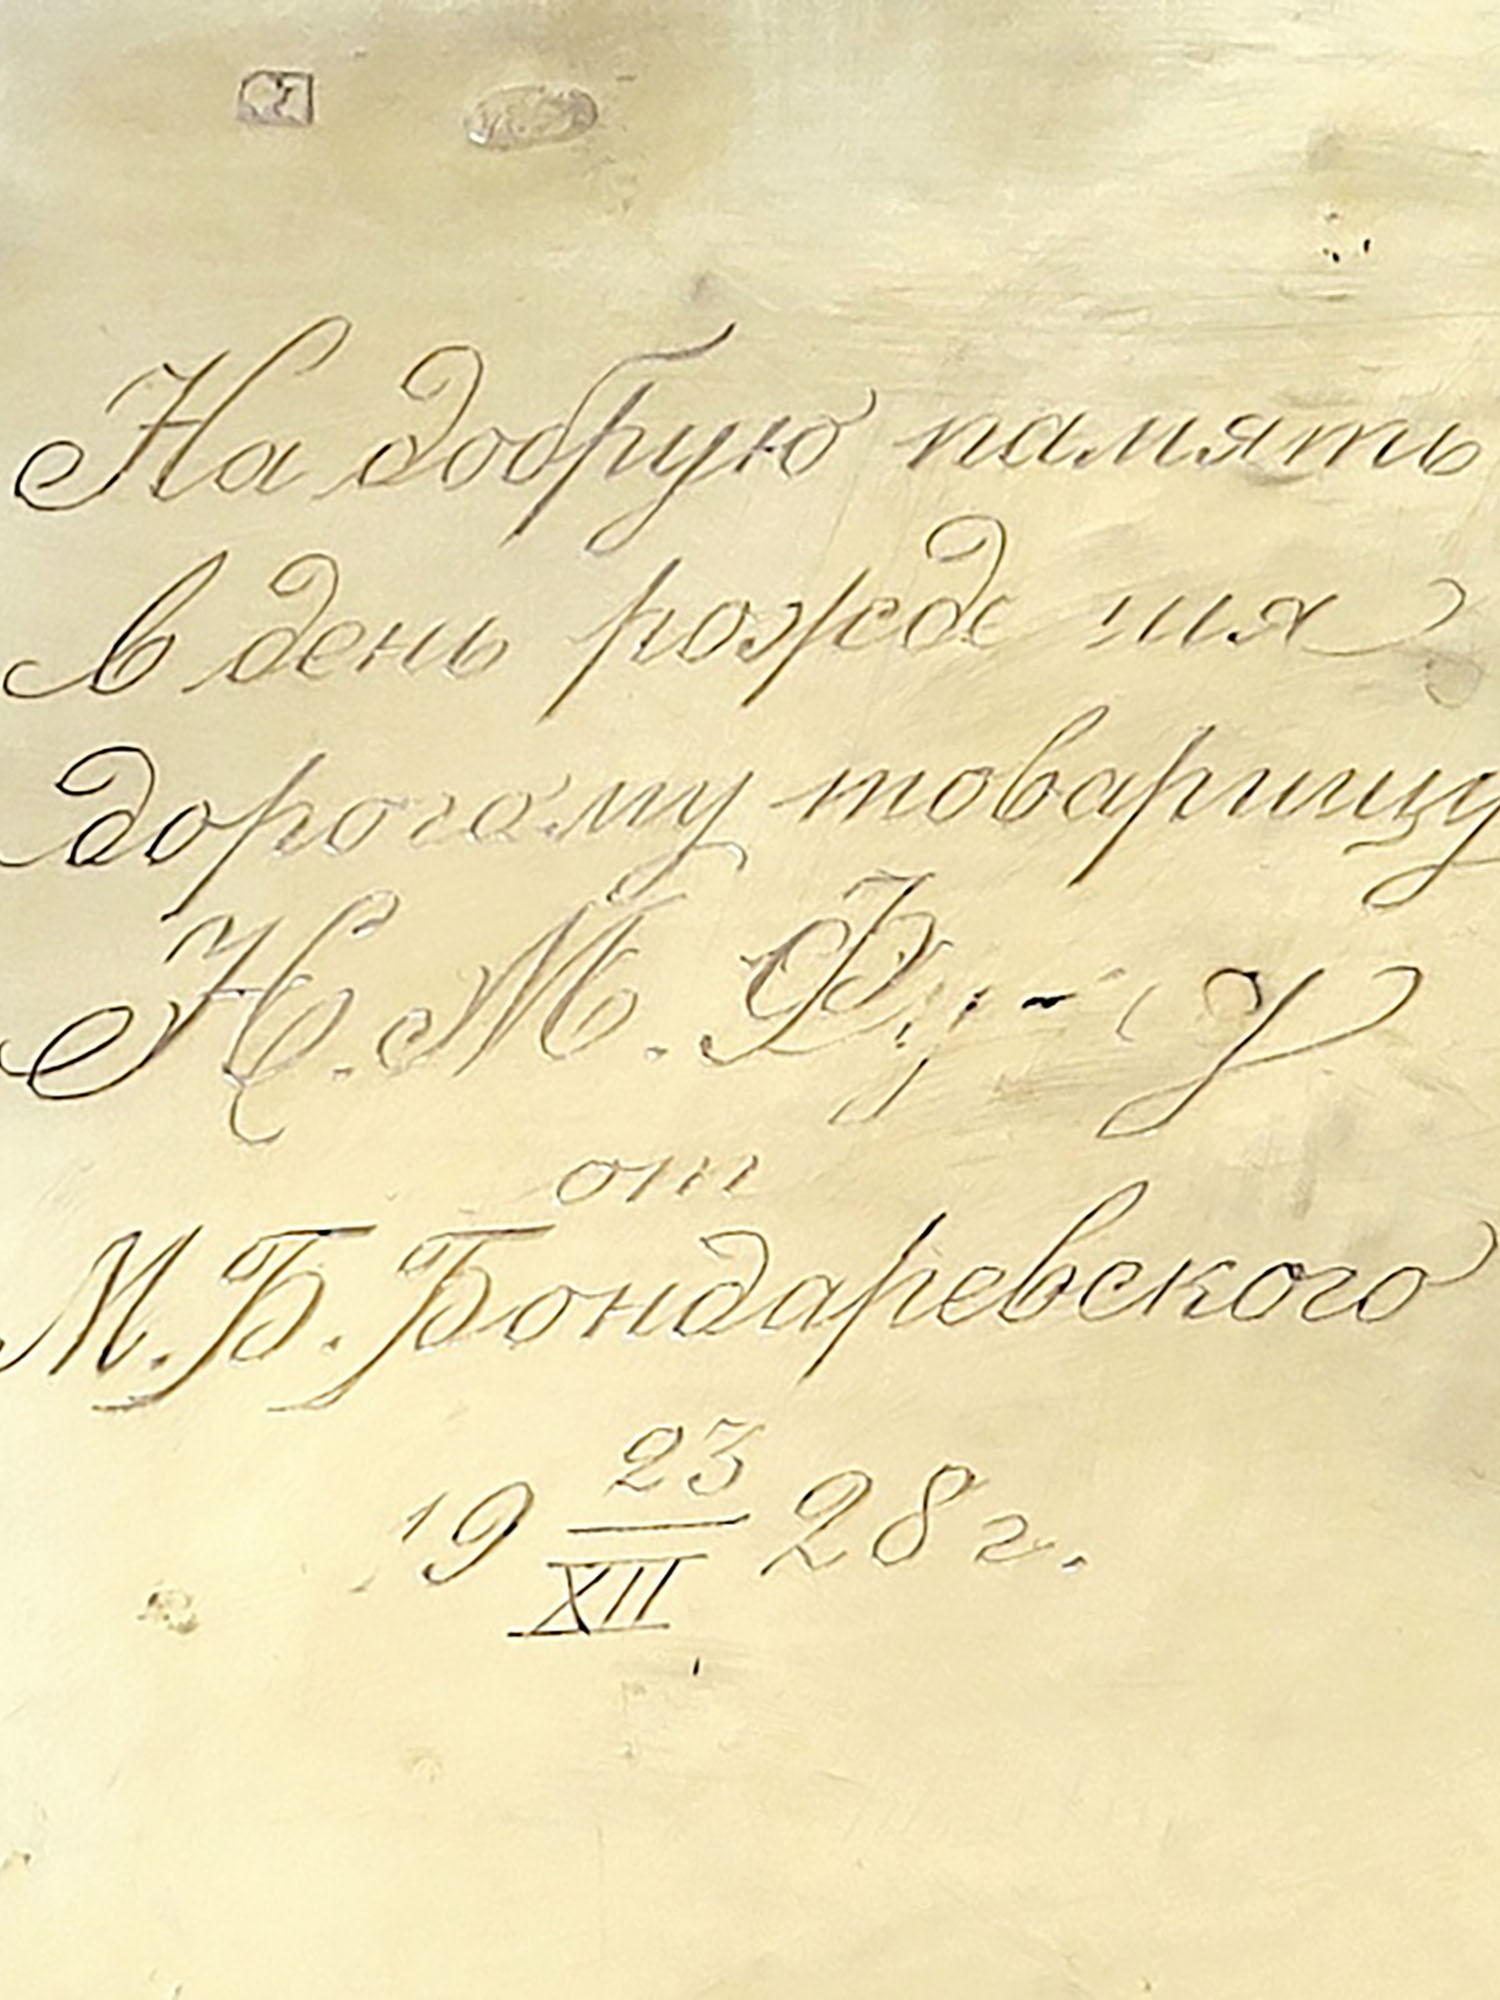 На добрую память
в день рожде ния
дорогому товарищу
Н. М.
от
М. Б. Бондаревского
19 23/XII 28 г.